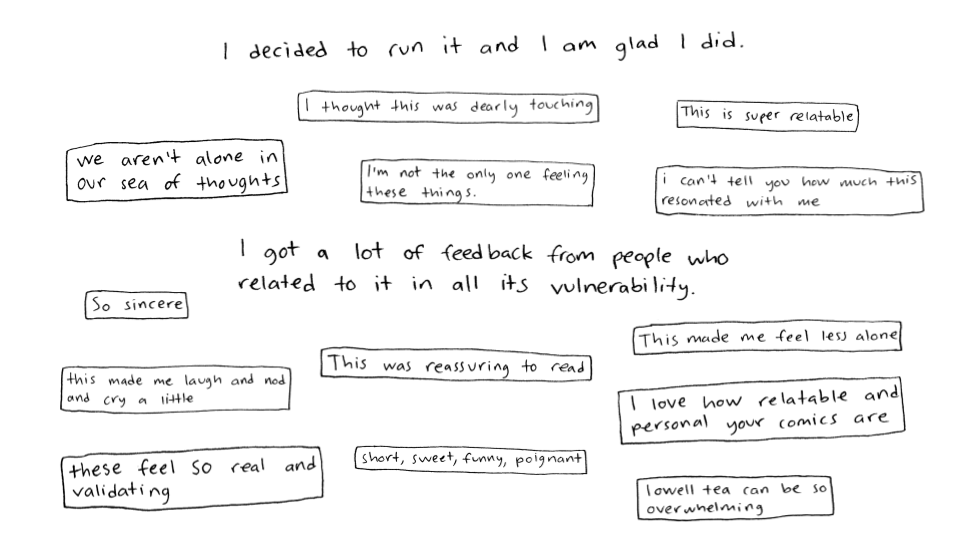 I decided to run it and I am glad I did.
I thought this was dearly touching
This is super relatable
we aren't alone in
our sea of thoughts
I'm not the only one feeling
these things.
i can't tell you how much this
resonated with me
I got a lot of feedback from people who
related to it in all its vulnerability.
So sincere
This made me feel less alone
This was reassuring to read
this made me laugh and nod
and cry a little
I love how relatable and
personal your comics are
these feel so real and
validating
short, sweet, funny, poignant
lowell tea can be so
overwhelming